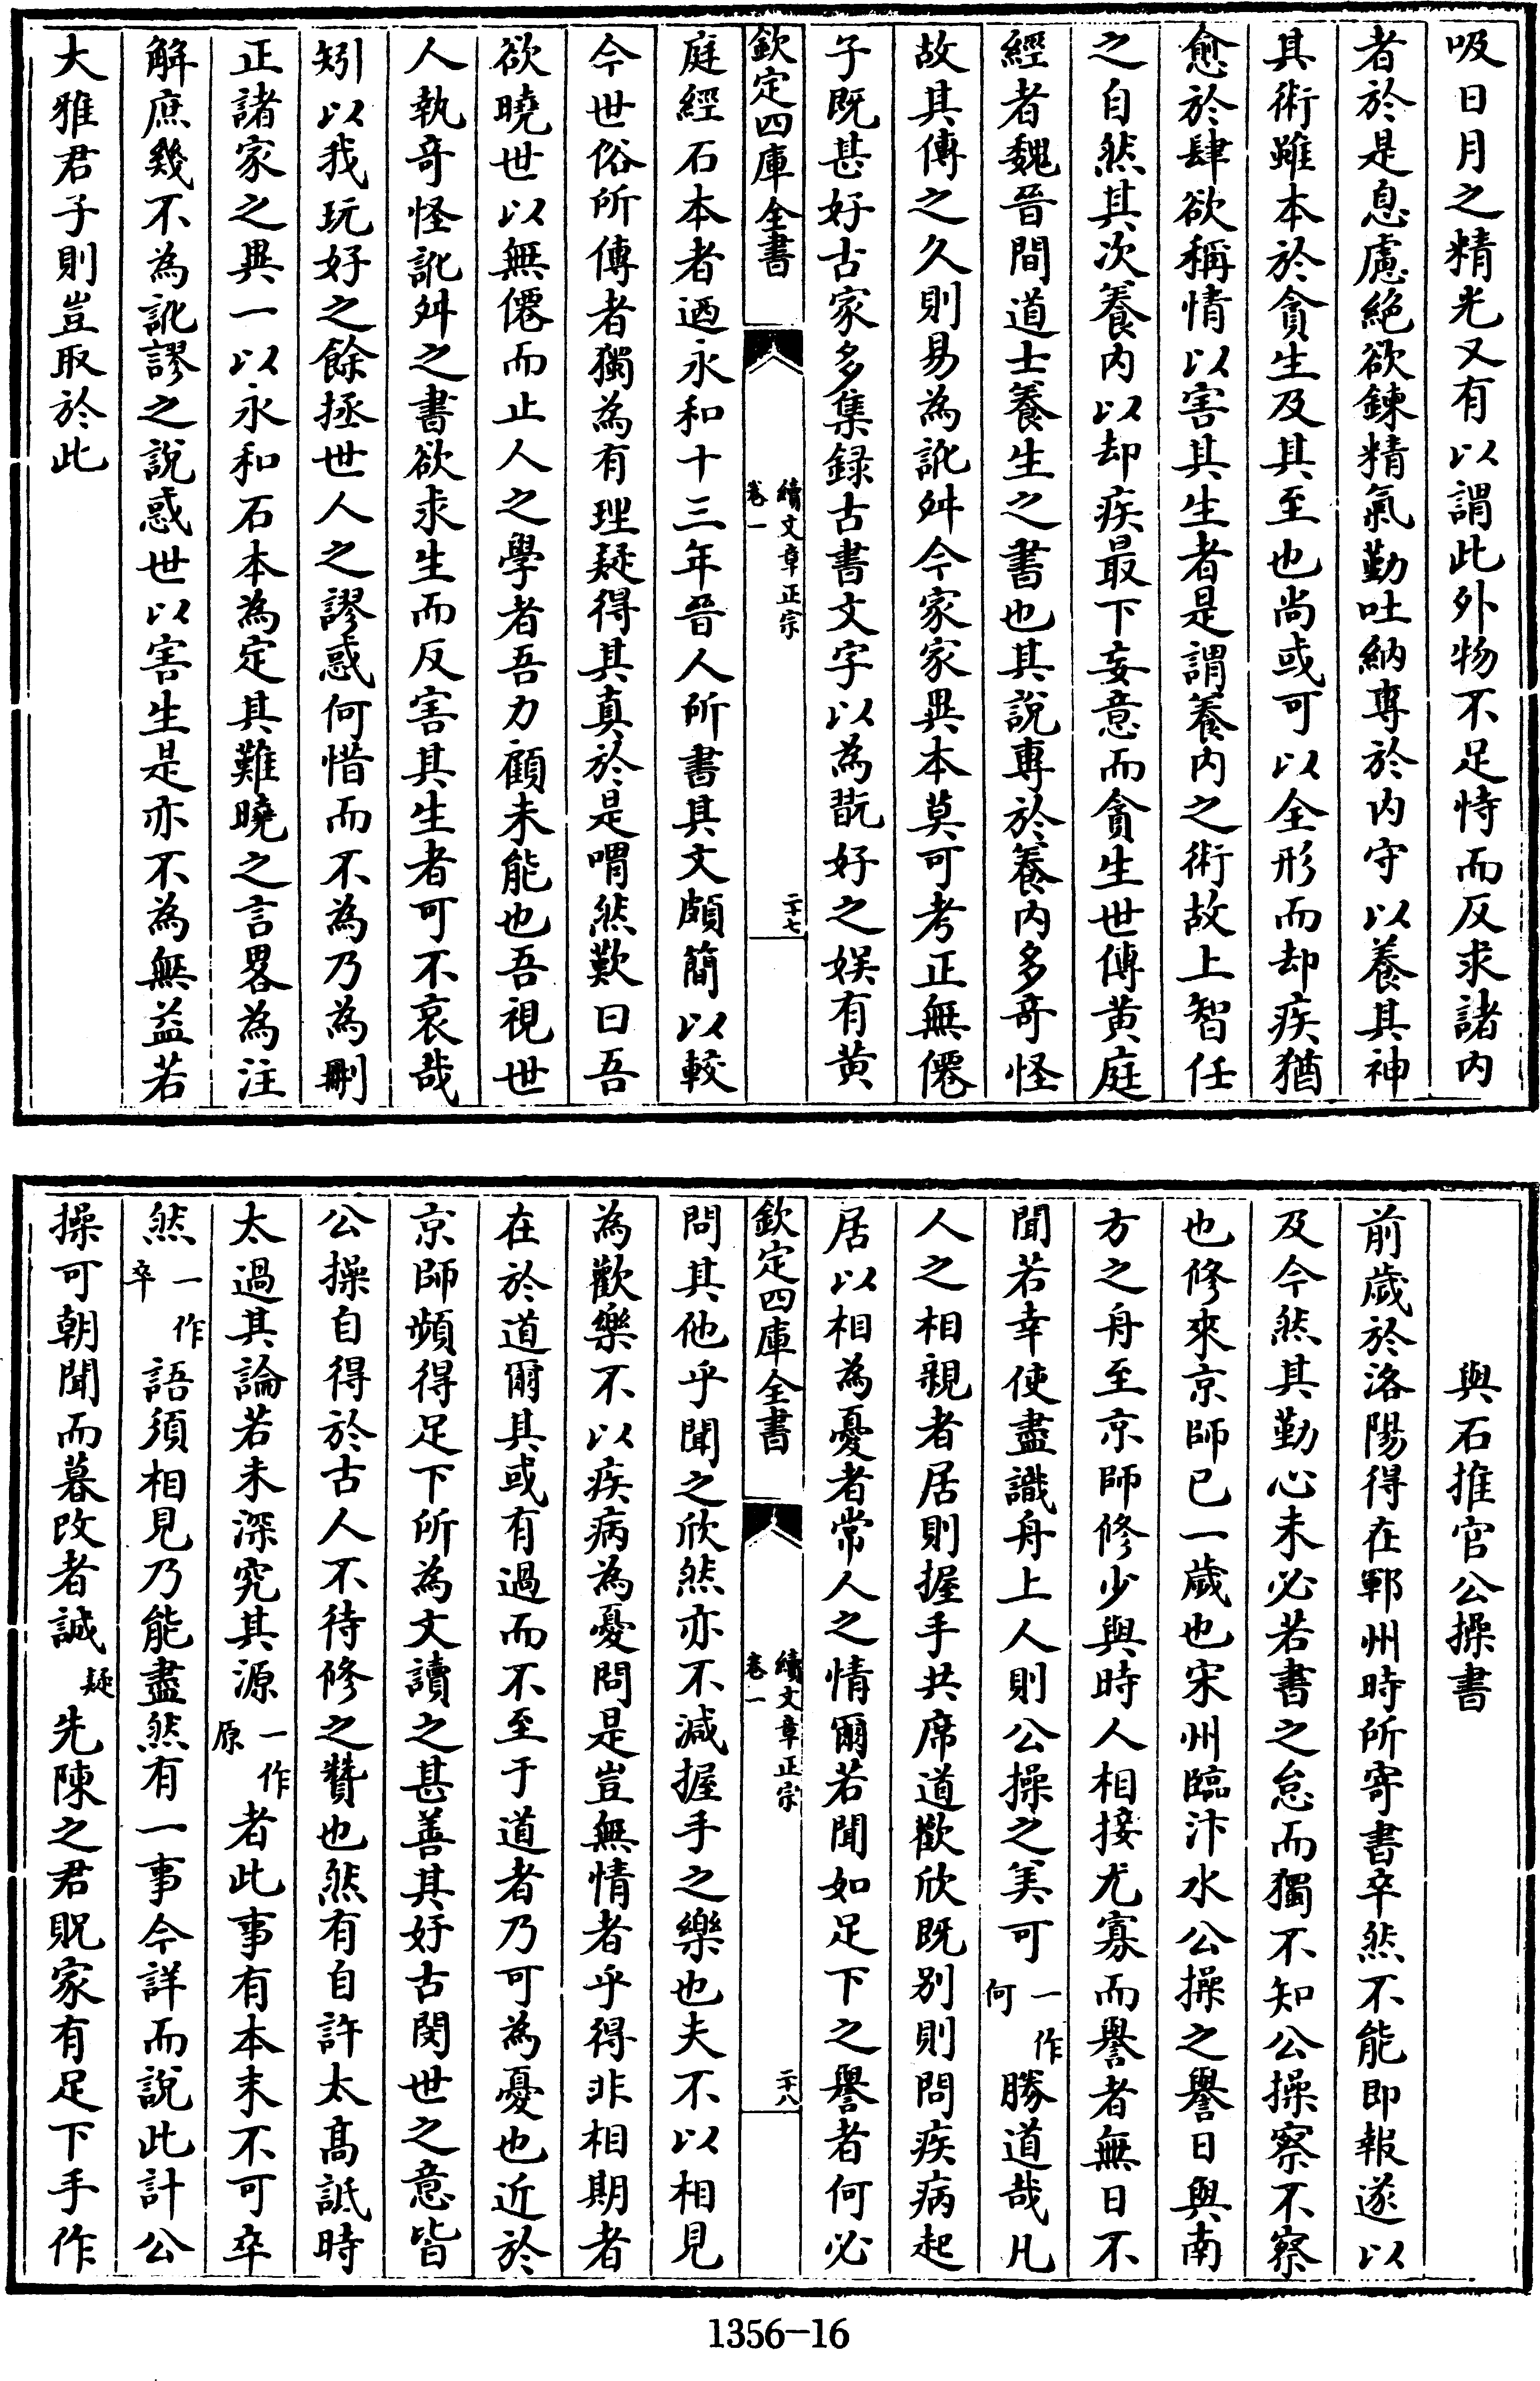 吸日月之精光又有以謂此外物不足恃而反求諸内
者於是息慮絶欲鍊精氣勤吐納專於内守以養其神
其術雖本於貪生及其至也尚或可以全形而却疾猶
愈於肆欲稱情以害其生者是謂養内之術故上智任
之自然其次養内以却疾最下妄意而貪生世傳黄庭
經者魏晉間道士養生之書也其說專於養内多奇怪
故其傳之久則易為訛舛今家家異本莫可考正無僊
子既甚好古家多集録古書文字以為翫好之娱有黄
欽定四庫全書
續文章正宗
卷一
二十七
庭經石本者迺永和十三年晉人所書其文頗簡以較
今世俗所傳者獨為有理疑得其真於是喟然歎曰吾
欲曉世以無僊而止人之學者吾力顧未能也吾視世
人執奇怪訛舛之書欲求生而反害其生者可不哀哉
矧以我玩好之餘拯世人之謬惑何惜而不為乃為刪
正諸家之異一以永和石本為定其難曉之言畧為注
解庶幾不為訛謬之說惑世以害生是亦不為無益若
大雅君子則豈取於此
與石推官公操書
前歲於洛陽得在鄆州時所寄書卒然不能即報遂以
及今然其勤心未必若書之怠而獨不知公操察不察
也修來京師已一歲也宋州臨汴水公操之譽日與南
方之舟至京師修少與時人相接尤寡而譽者無日不
聞若幸使盡識舟上人則公操之美可一作何勝道哉凡
人之相親者居則握手共席道歡欣既别則問疾病起
居以相為憂者常人之情爾若聞如足下之譽者何必
欽定四庫全書
續文章正宗
卷一
二十八
問其他乎聞之欣然亦不減握手之樂也夫不以相見
為歡樂不以疾病為憂問是豈無情者乎得非相期者
在於道爾其或有過而不至于道者乃可為憂也近於
京師頻得足下所為文讀之甚善其好古閔世之意皆
公操自得於古人不待修之贊也然有自許太高詆時
太過其論若未深究其源一作原者此事有本末不可卒
然一作卒語須相見乃能盡然有一事今詳而說此計公
操可朝聞而暮改者誠疑先陳之君貺家有足下手作
1356-16